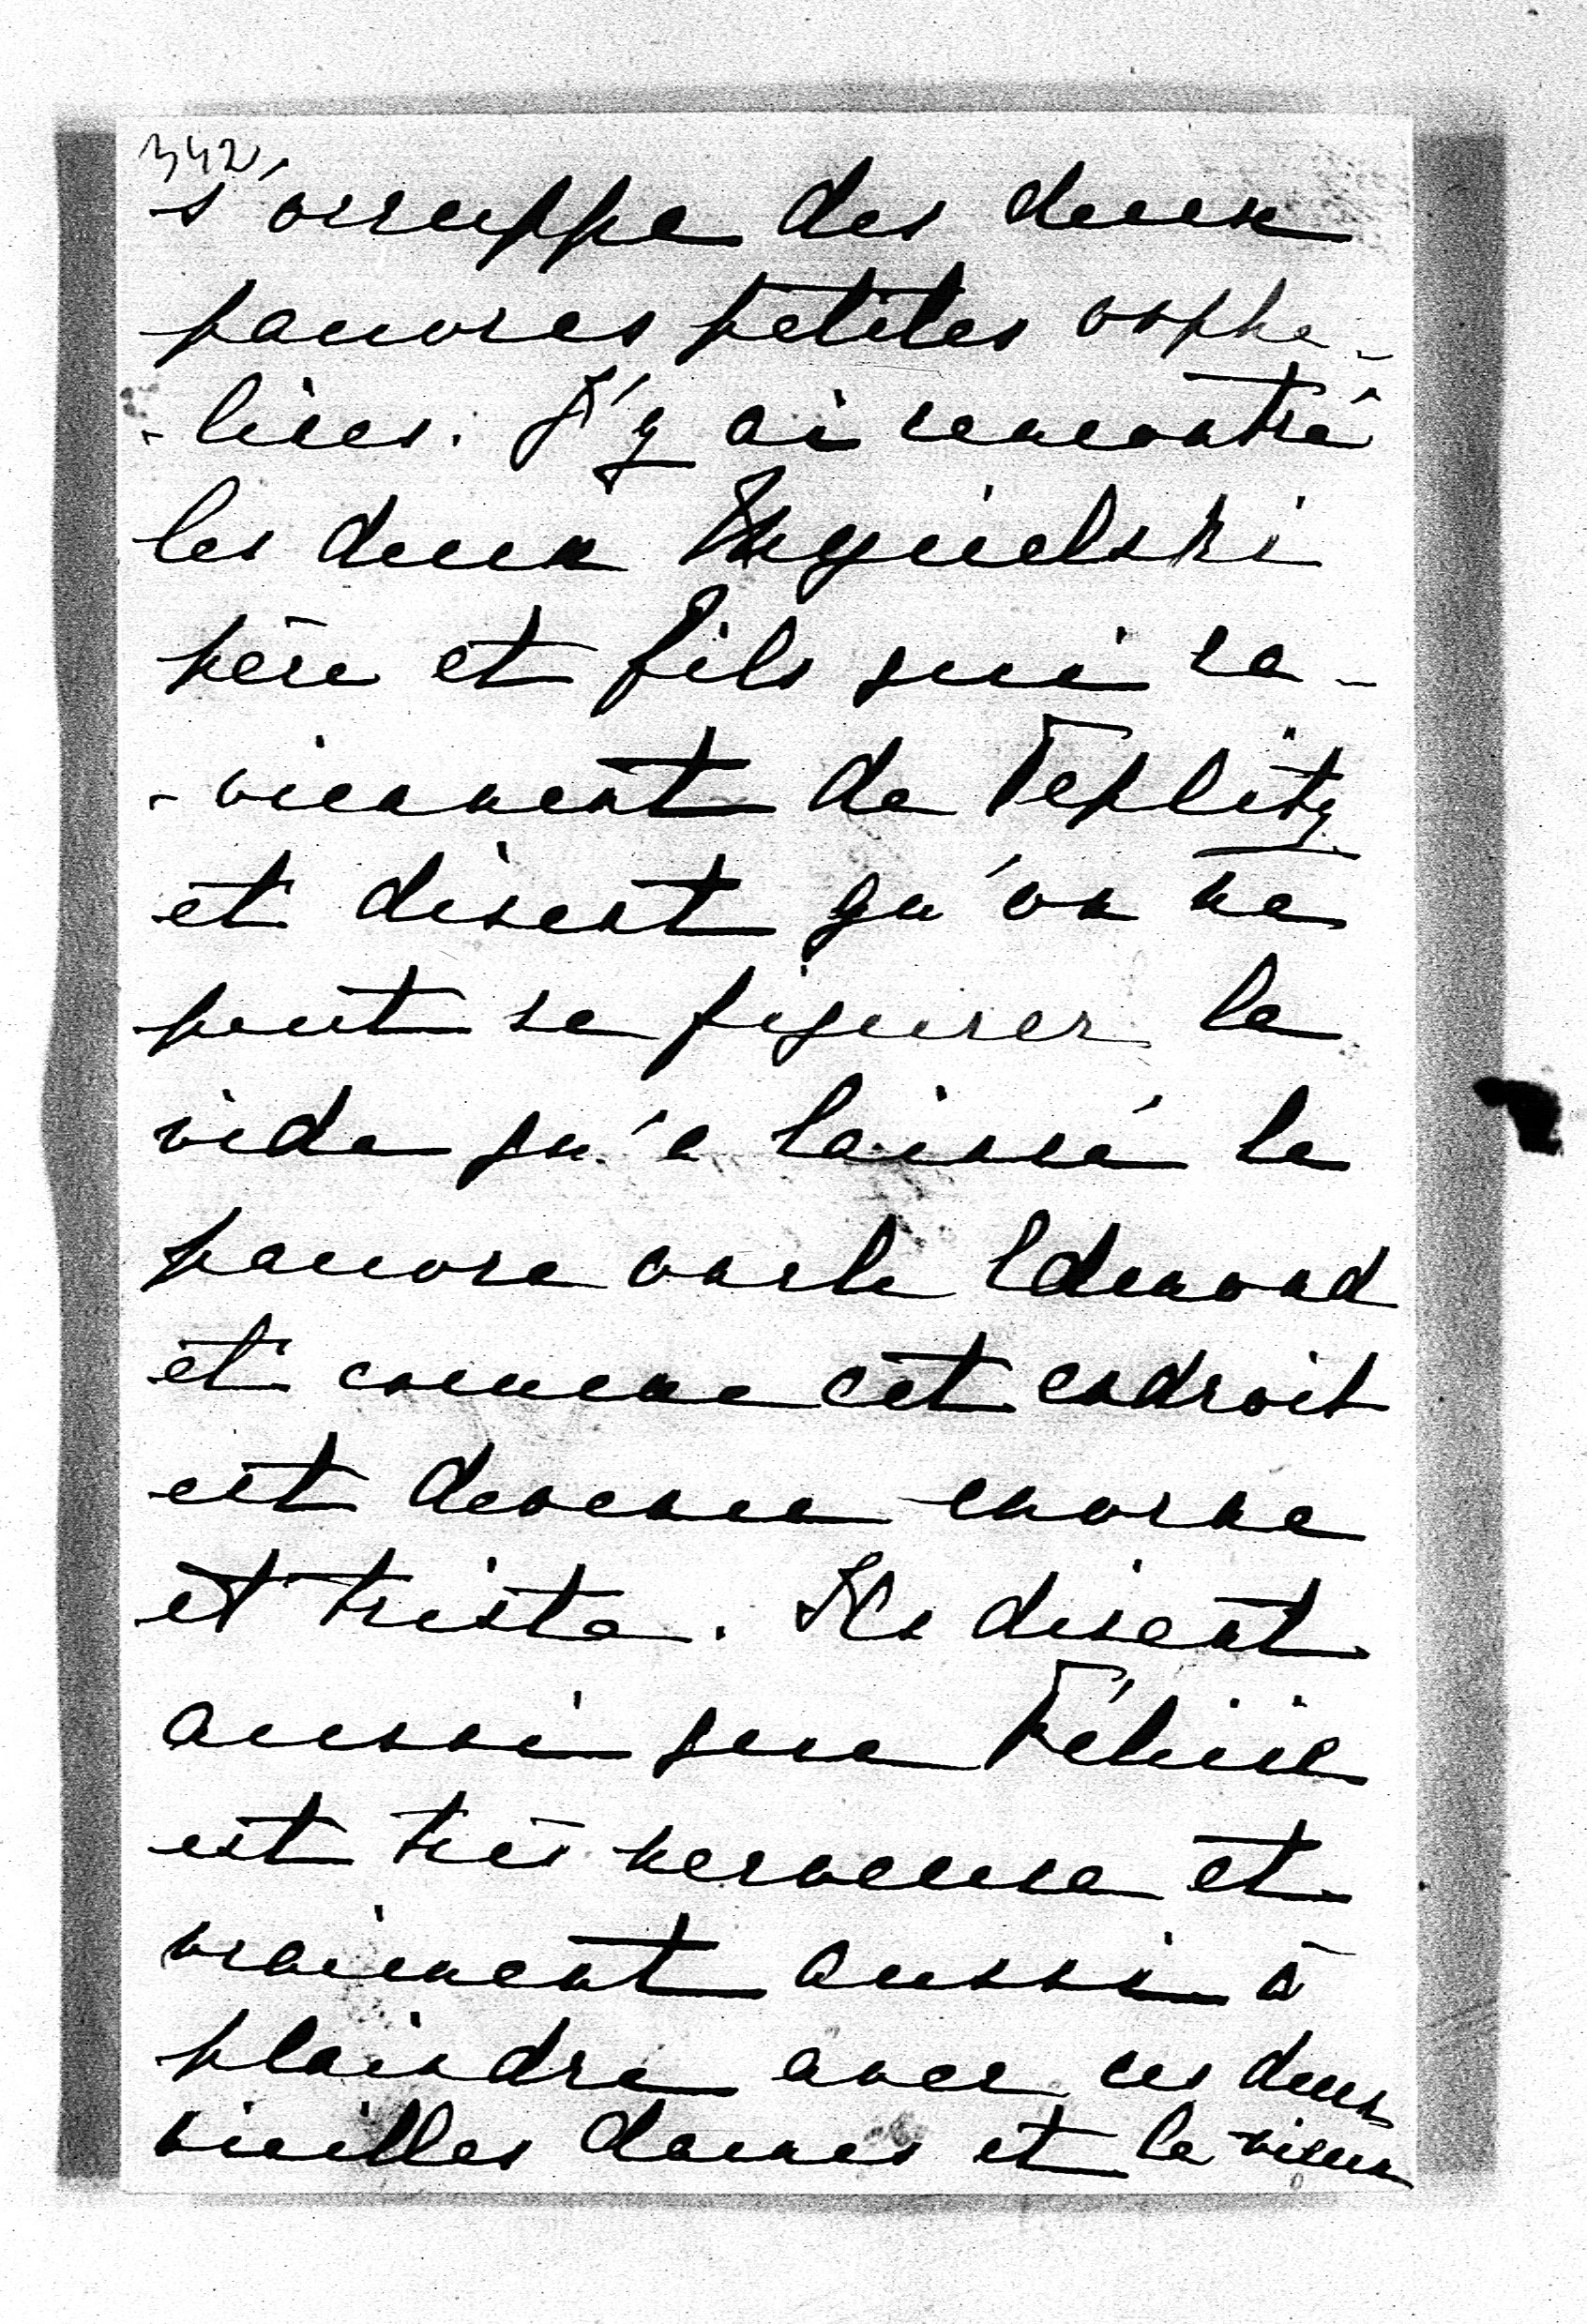 342
s'occuppe des deux
pauvres petites orphe-
-lines. J'y ai rencontré
les deux Mycielski
père et fils qui re-
-viennent de Teplitz
et disent qu'on ne
peut se figurer le
vide qu'a laissé le
pauvre oncle Edmond
et comme cet endroit
est devenu morne
et triste. Ils disent
aussi que Félicie
est très nerveuse et
vraiment aussi à
plaindre avec ces deux
vieilles dames et le vieux